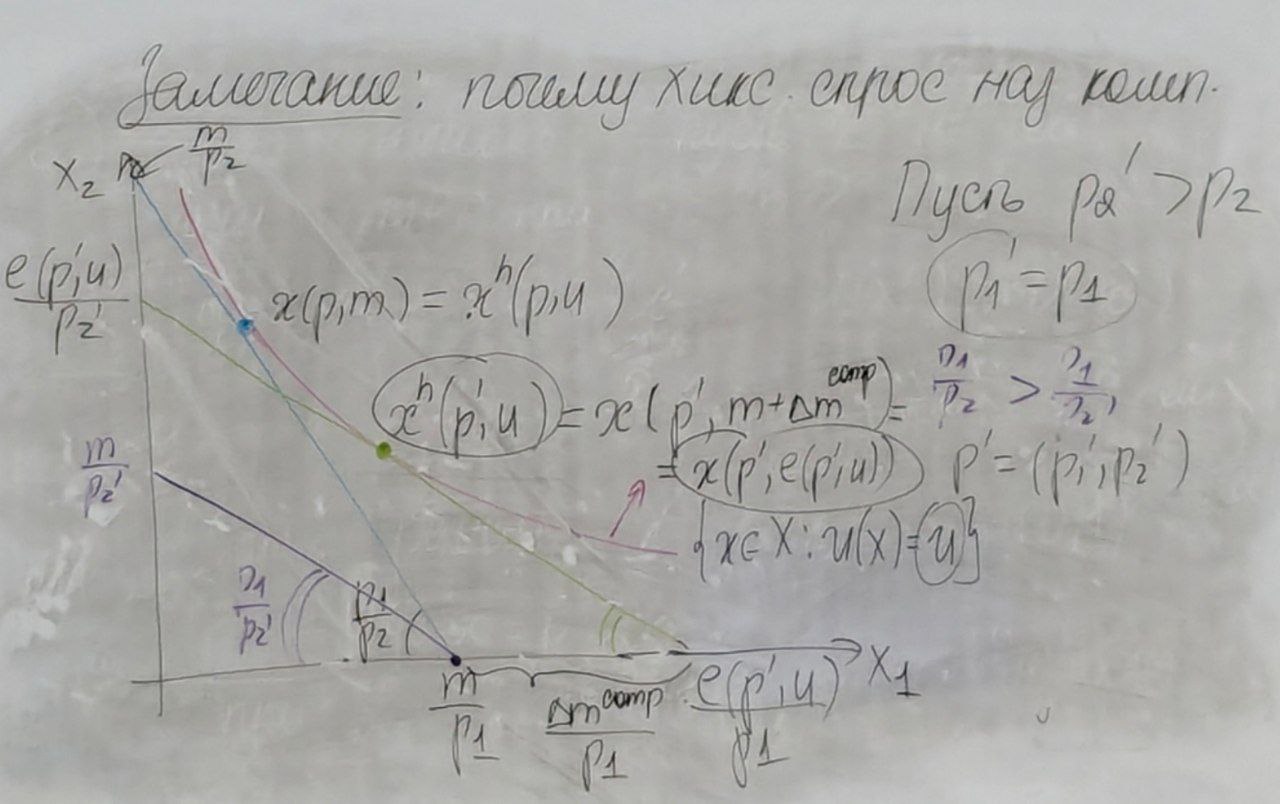 Замечание: почему хикс. спрос наз комп.
m/p₂
x₂
Пусть p₂' > p₂
p₁' = p₁
e(p',u)/p₂'
x(p,m) = xʰ(p,u)
xʰ(p',u) = x(p', m+Δm^comp) =
= x(p', e(p',u))
p₁/p₂ > p₁/p₂'
p' = (p₁', p₂')
m/p₂'
{x∈X : u(x)=u}
p₁/p₂'
p₁/p₂
x₁
m/p₁
Δm^comp/p₁
e(p',u)/p₁